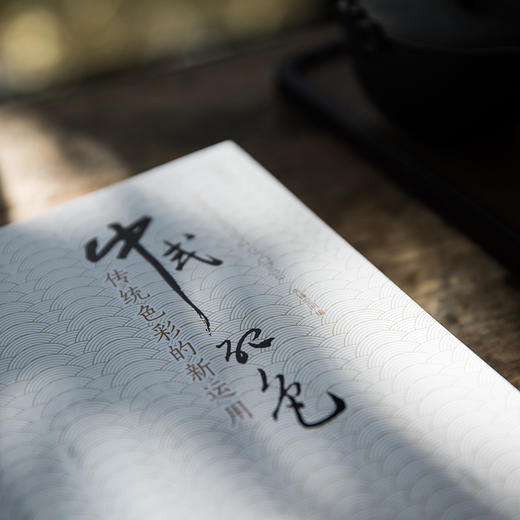 中式配色
传统色彩的新运用